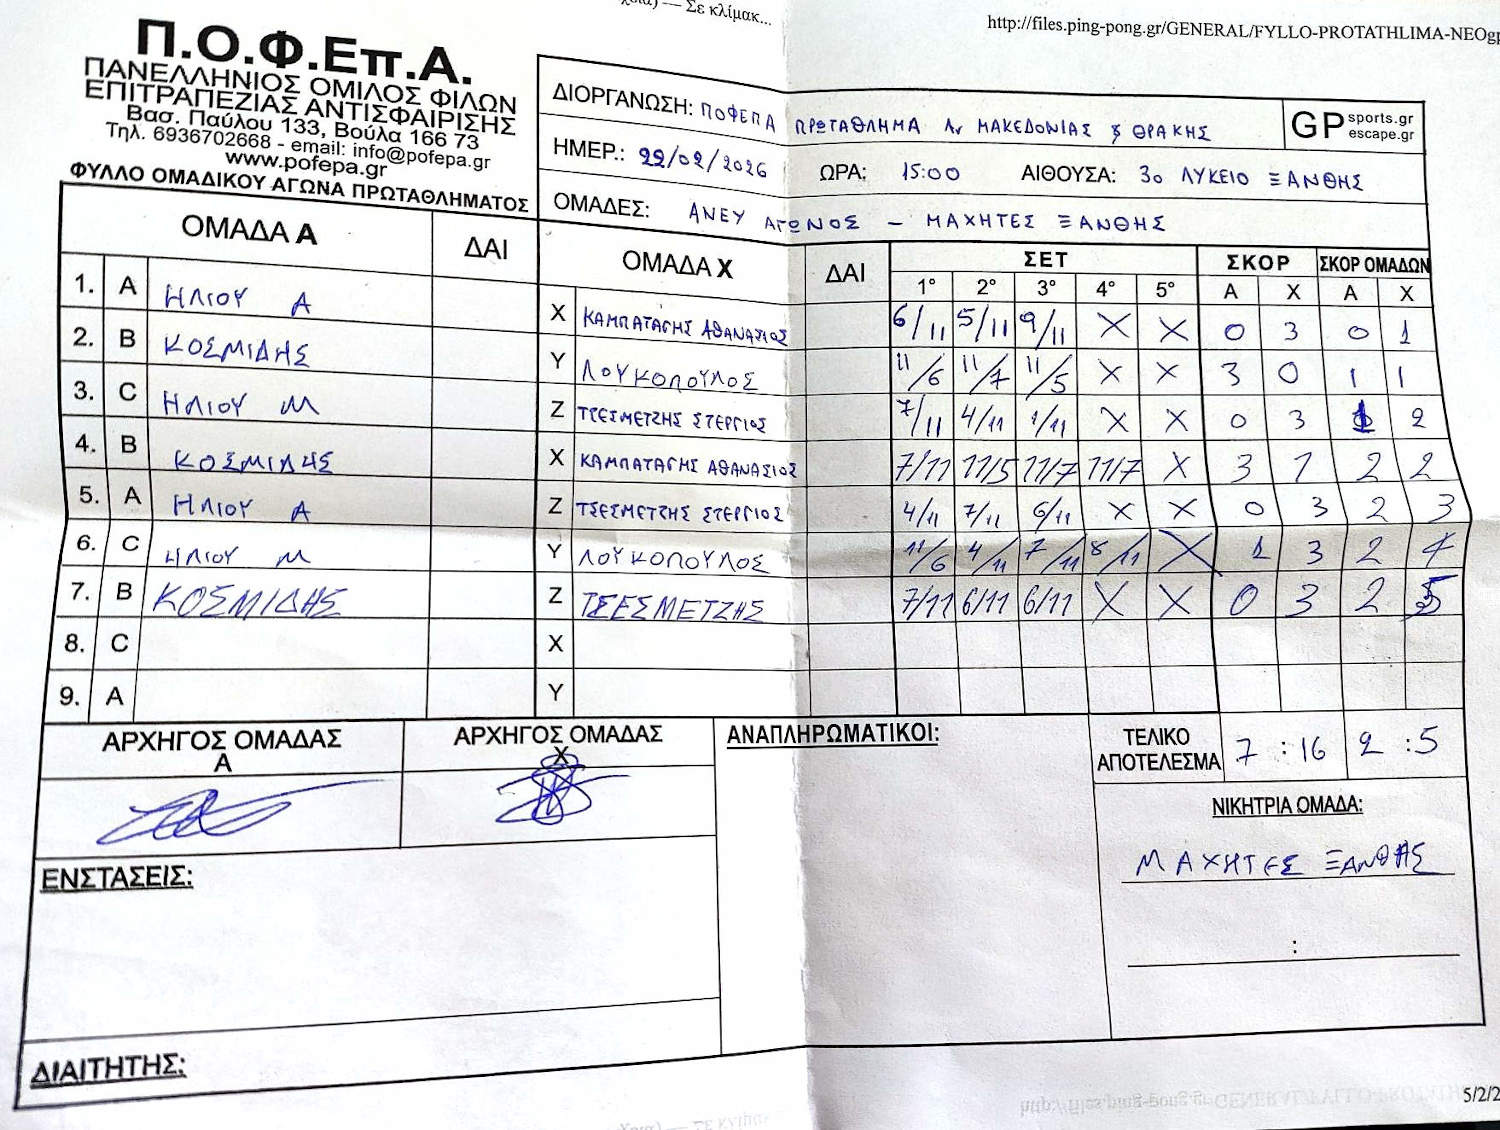 Σε κλίμακ...
http://files.ping-pong.gr/GENERAL/FYLLO-PROTATHLIMA-NEOgp
Π.Ο.Φ.Επ.Α.
ΠΑΝΕΛΛΗΝΙΟΣ ΟΜΙΛΟΣ ΦΙΛΩΝ
ΕΠΙΤΡΑΠΕΖΙΑΣ ΑΝΤΙΣΦΑΙΡΙΣΗΣ
Βασ. Παύλου 133, Βούλα 166 73
Τηλ. 6936702668 - email: info@pofepa.gr
www.pofepa.gr
ΦΥΛΛΟ ΟΜΑΔΙΚΟΥ ΑΓΩΝΑ ΠΡΩΤΑΘΛΗΜΑΤΟΣ
ΔΙΟΡΓΑΝΩΣΗ: ΠΟΦΕΠΑ ΠΡΩΤΑΘΛΗΜΑ Αν ΜΑΚΕΔΟΝΙΑΣ & ΘΡΑΚΗΣ
GP sports.gr escape.gr
ΗΜΕΡ.: 22/02/2026 ΩΡΑ: 15:00 ΑΙΘΟΥΣΑ: 3ο ΛΥΚΕΙΟ ΞΑΝΘΗΣ
ΟΜΑΔΕΣ: ΑΝΕΥ ΑΓΩΝΟΣ - ΜΑΧΗΤΕΣ ΞΑΝΘΗΣ
ΟΜΑΔΑ Α ΔΑΙ ΟΜΑΔΑ Χ ΔΑΙ ΣΕΤ ΣΚΟΡ ΣΚΟΡ ΟΜΑΔΩΝ
1° 2° 3° 4° 5° Α Χ Α Χ
1. A ΗΛΙΟΥ Α X ΚΑΜΠΑΤΑΓΗΣ ΑΘΑΝΑΣΙΟΣ 6/11 5/11 9/11 X X 0 3 0 1
2. B ΚΟΣΜΙΔΗΣ Y ΛΟΥΚΟΠΟΥΛΟΣ 11/6 11/7 11/5 X X 3 0 1 1
3. C ΗΛΙΟΥ Μ Z ΤΣΕΣΜΕΤΖΗΣ ΣΤΕΡΓΙΟΣ 7/11 4/11 1/11 X X 0 3 1 2
4. B ΚΟΣΜΙΔΗΣ X ΚΑΜΠΑΤΑΓΗΣ ΑΘΑΝΑΣΙΟΣ 7/11 11/5 11/7 11/7 X 3 1 2 2
5. A ΗΛΙΟΥ Α Z ΤΣΕΣΜΕΤΖΗΣ ΣΤΕΡΓΙΟΣ 4/11 7/11 6/11 X X 0 3 2 3
6. C ΗΛΙΟΥ Μ Y ΛΟΥΚΟΠΟΥΛΟΣ 11/6 4/11 7/11 8/11 X 1 3 2 4
7. B ΚΟΣΜΙΔΗΣ Z ΤΣΕΣΜΕΤΖΗΣ 7/11 6/11 6/11 X X 0 3 2 5
8. C X
9. A Y
ΑΡΧΗΓΟΣ ΟΜΑΔΑΣ Α
ΑΡΧΗΓΟΣ ΟΜΑΔΑΣ Χ
ΑΝΑΠΛΗΡΩΜΑΤΙΚΟΙ:
ΤΕΛΙΚΟ ΑΠΟΤΕΛΕΣΜΑ 7 : 16 2 : 5
ΝΙΚΗΤΡΙΑ ΟΜΑΔΑ:
ΜΑΧΗΤΕΣ ΞΑΝΘΗΣ
:
ΕΝΣΤΑΣΕΙΣ:
ΔΙΑΙΤΗΤΗΣ:
5/2/2